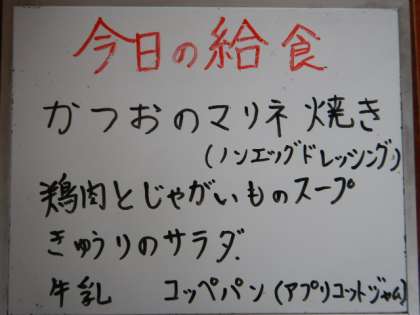 今日の給食
かつおのマリネ焼き
(ノンエッグドレッシング)
鶏肉とじゃがいものスープ
きゅうりのサラダ
牛乳　コッペパン(アプリコットジャム)